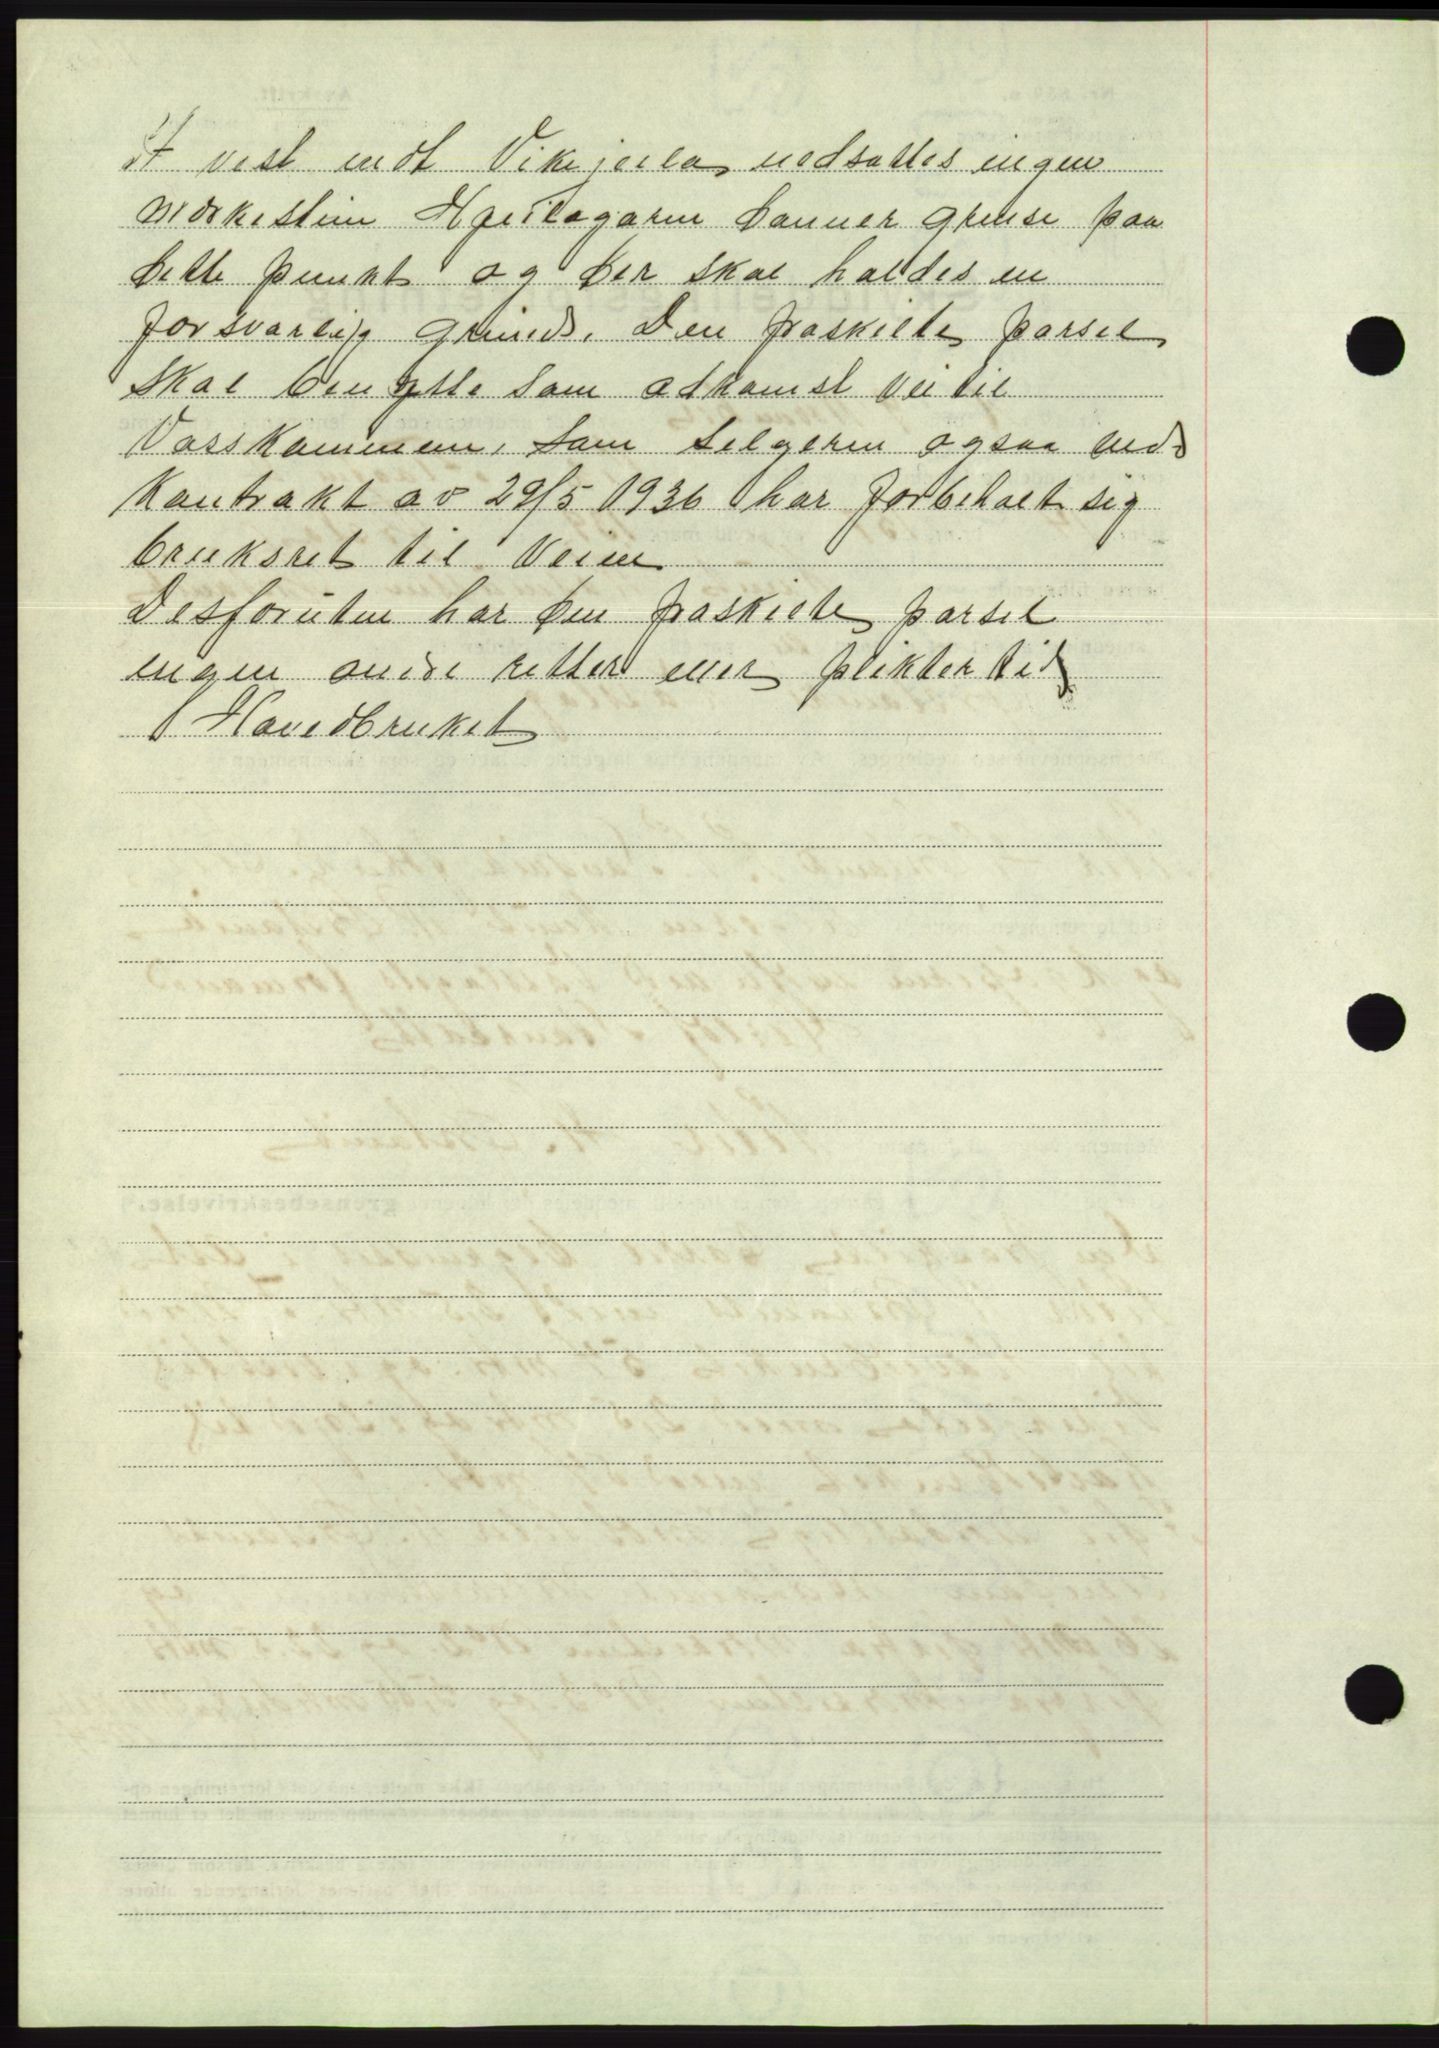 I vest mot Vikejeila nedsattes ingen
Merkestein Hjeilegaren danner grense paa
dette punkt og der skal holdes en
forsvarlig grind. Den fraskilte parsel
skal benytte som adkomst vei til
Vasskammen, som selgeren ogsaa ved
Kontrakt av 29/5 1936 har forbeholt sig
bruksret til veien
Desforuten har den fraskilte parsel
ingen andre retter eller plikter til
Hovedbruket